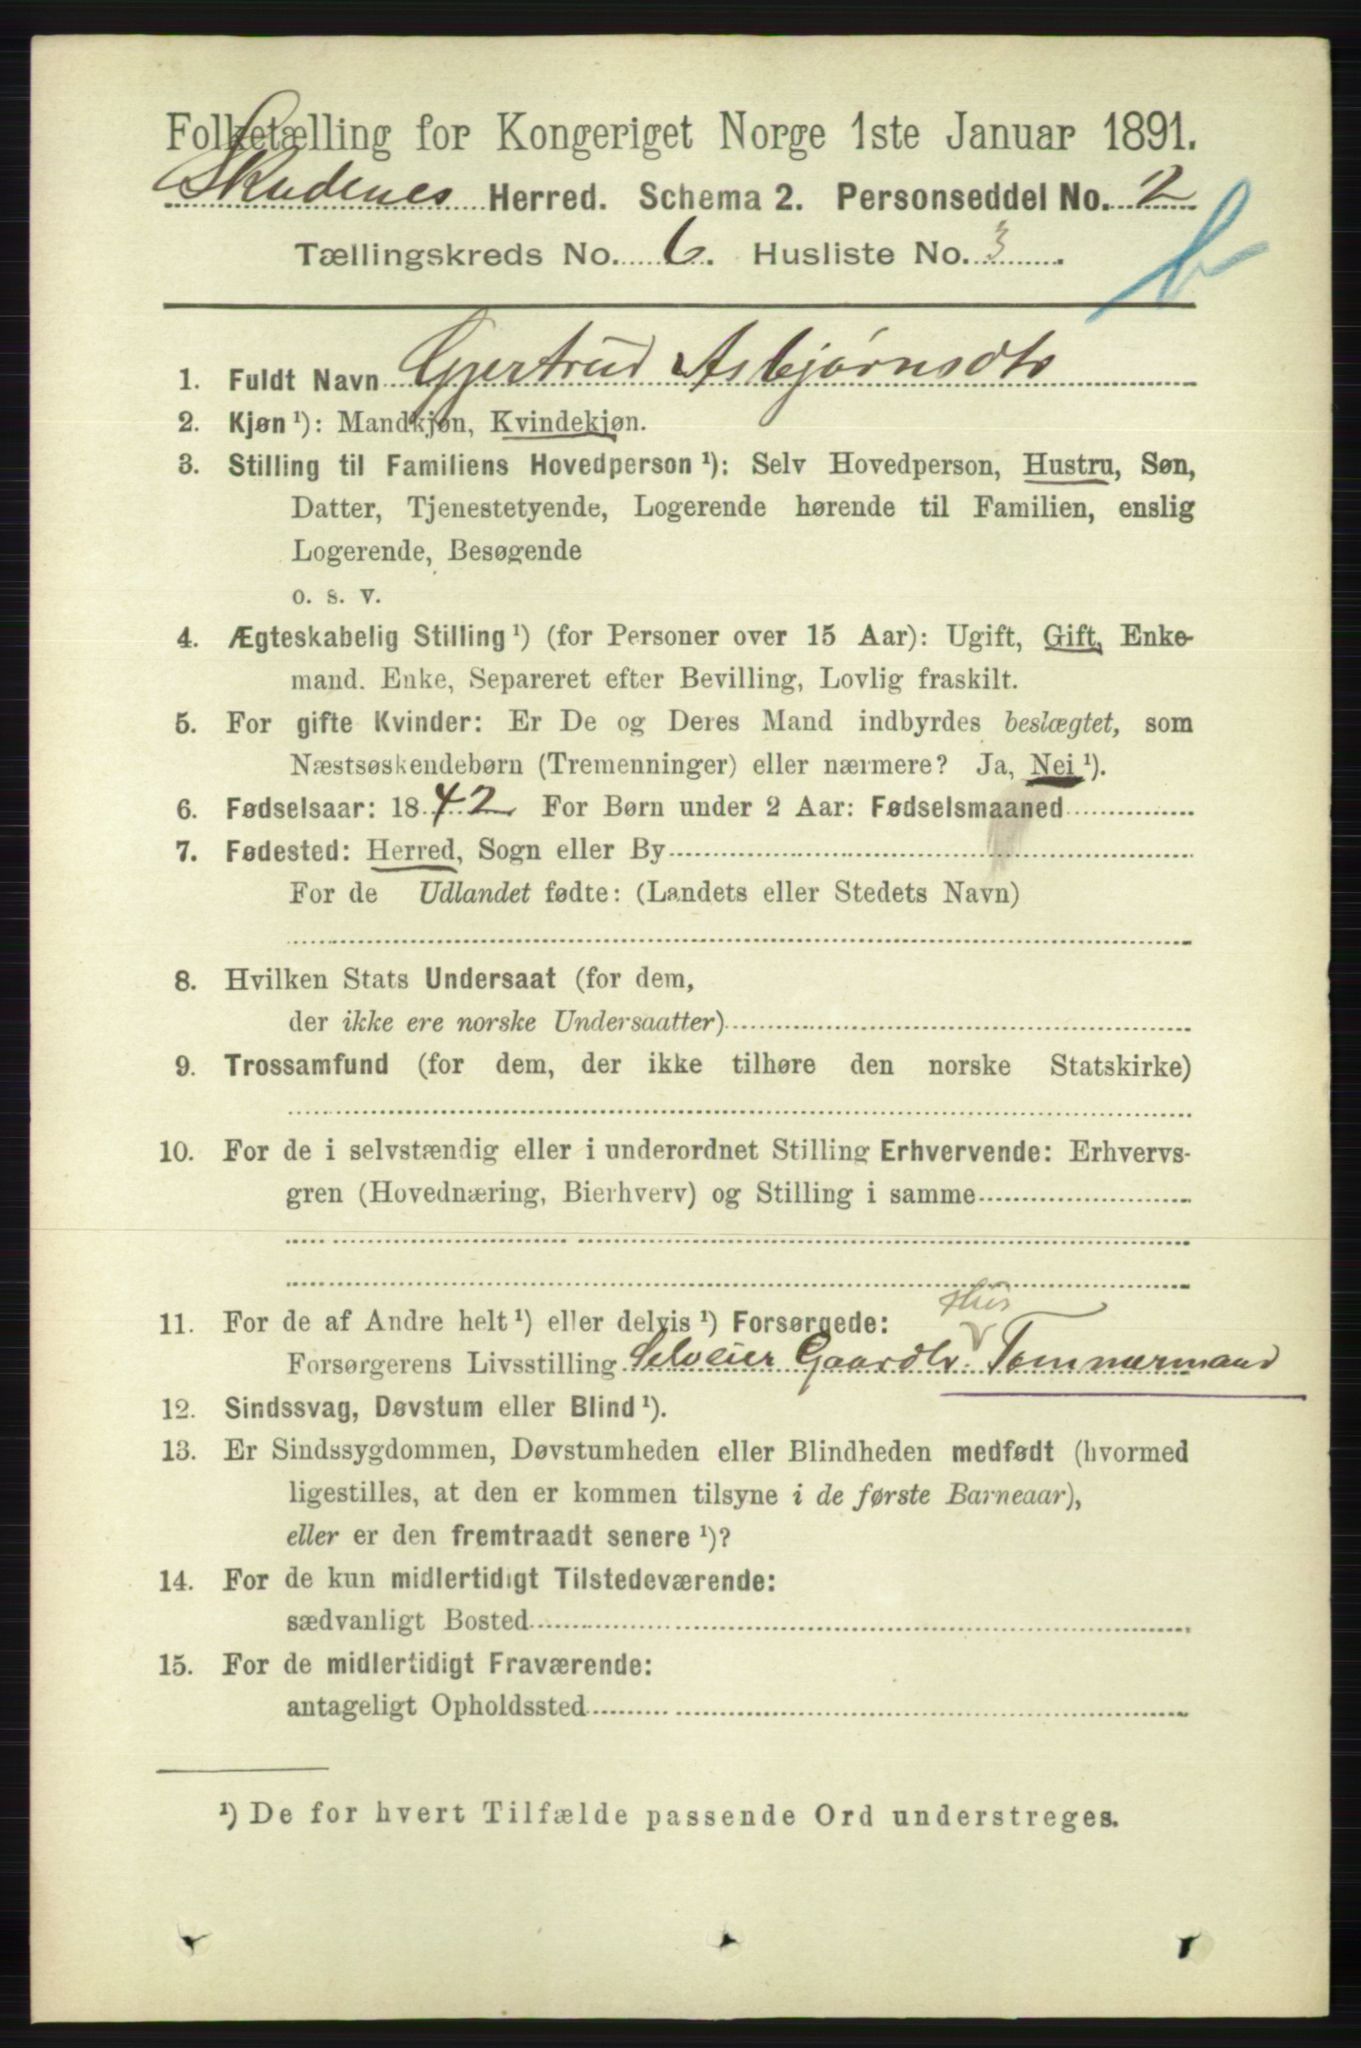 Folketælling for Kongeriget Norge 1ste Januar 1891.
Skudenes Herred. Schema 2. Personseddel No. 2
Tællingskreds No. 6. Husliste No. 3.
b
1. Fuldt Navn Gjertrud Asbjørnsdtr
2. Kjøn ¹): Mandkjøn, Kvindekjøn.
3. Stilling til Familiens Hovedperson ¹): Selv Hovedperson, Hustru, Søn,
Datter, Tjenestetyende, Logerende hørende til Familien, enslig
Logerende, Besøgende
o. s. v.
4. Ægteskabelig Stilling ¹) (for Personer over 15 Aar): Ugift, Gift, Enke-
mand. Enke, Separeret efter Bevilling, Lovlig fraskilt.
5. For gifte Kvinder: Er De og Deres Mand indbyrdes beslægtet, som
Næstsøskendebørn (Tremenninger) eller nærmere? Ja, Nei ¹).
6. Fødselsaar: 1842 For Børn under 2 Aar: Fødselsmaaned
7. Fødested: Herred, Sogn eller By
For de Udlandet fødte: (Landets eller Stedets Navn)
8. Hvilken Stats Undersaat (for dem,
der ikke ere norske Undersaatter)
9. Trossamfund (for dem, der ikke tilhøre den norske Statskirke)
10. For de i selvstændig eller i underordnet Stilling Erhvervende: Erhvervs-
gren (Hovednæring, Bierhverv) og Stilling i samme
11. For de af Andre helt ¹) eller delvis ¹) Forsørgede:
Hus
Forsørgerens Livsstilling Selveier Gaardbr Tømmermand
12. Sindssvag, Døvstum eller Blind ¹).
13. Er Sindssygdommen, Døvstumheden eller Blindheden medfødt (hvormed
ligestilles, at den er kommen tilsyne i de første Barneaar),
eller er den fremtraadt senere ¹)?
14. For de kun midlertidigt Tilstedeværende:
sædvanligt Bosted
15. For de midlertidigt Fraværende:
antageligt Opholdssted
¹) De for hvert Tilfælde passende Ord understreges.